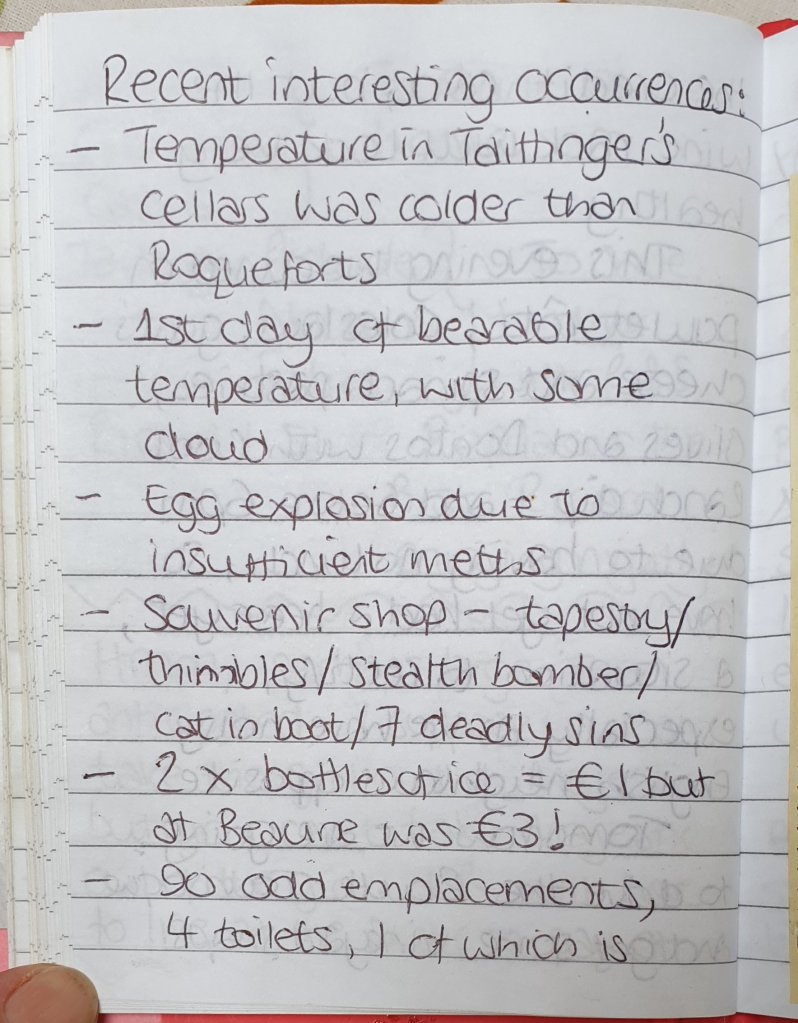 Recent interesting occurrences:
- Temperature in Taittinger's
cellars was colder than
Roqueforts
- 1st day of bearable
temperature, with some
cloud
- Egg explosion due to
insufficient meths
- Souvenir shop - tapestry/
thimbles/stealth bomber/
cat in boot/7 deadly sins
- 2 x bottles of ice = €1 but
at Beaune was €3!
- 90 odd emplacements,
4 toilets, 1 of which is